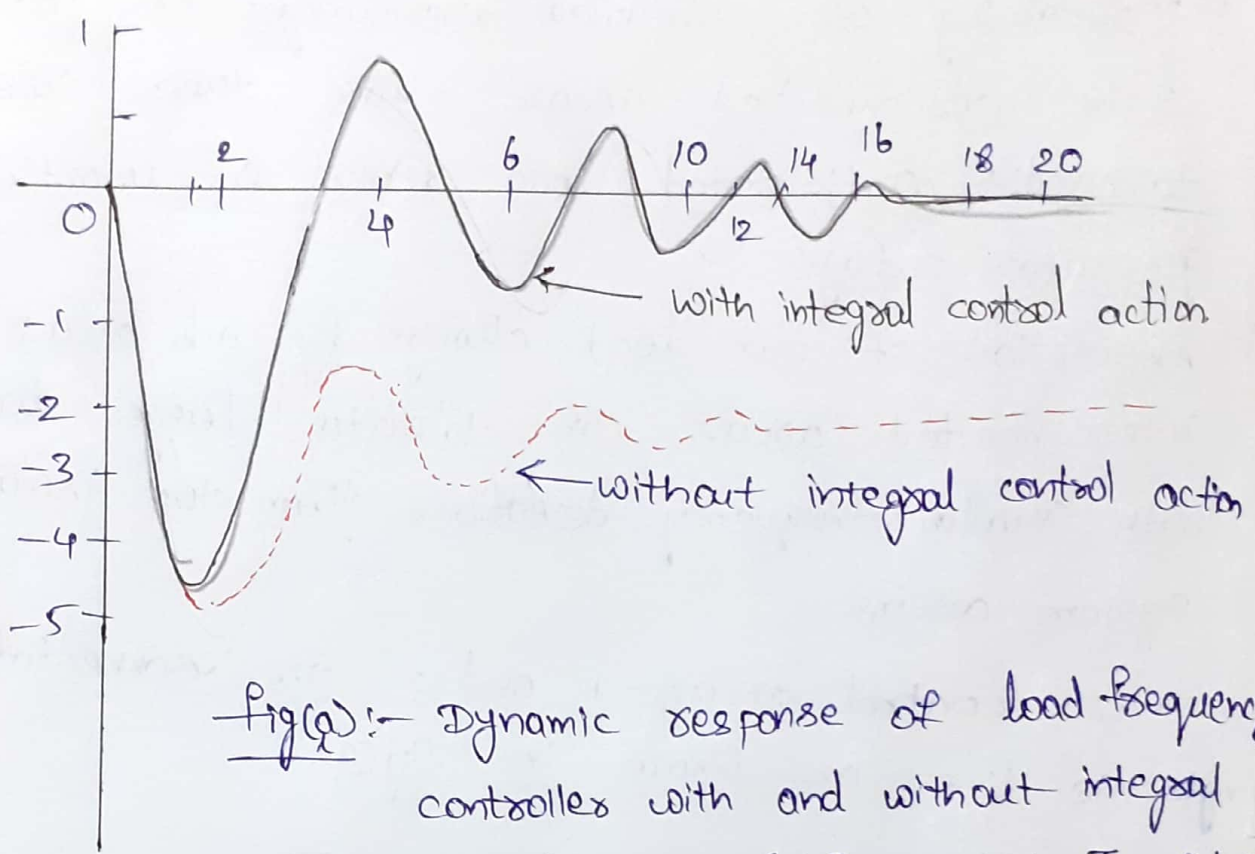 1
2
6
10
14
16
18
20
0
4
12
with integral control action
-1
-2
-3
without integral control action
-4
-5
fig(a):- Dynamic response of load frequenc
controller with and without integral